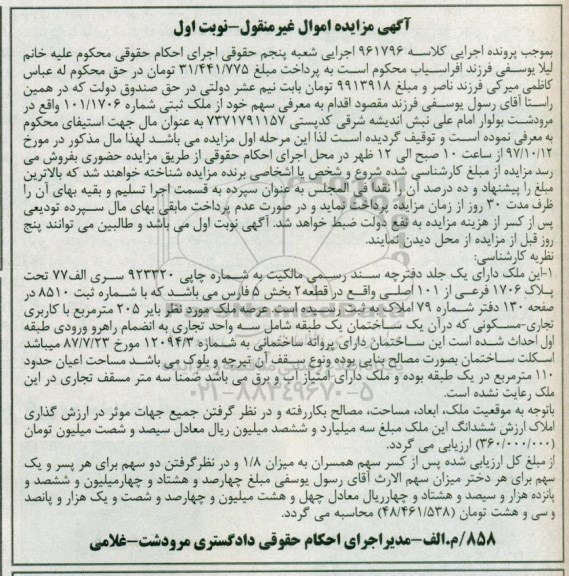 آگهی مزایده اموال غیرمنقول-نوبت اول
بموجب پرونده اجرایی کلاسه ۹۶۱۷۹۶ اجرایی شعبه پنجم حقوقی اجرای احکام حقوقی محکوم علیه خانم
لیلا یوسفی فرزند افراسیاب محکوم است به پرداخت مبلغ ۳۱/۴۴۱/۷۷۵ تومان در حق محکوم له عباس
کاظمی میرکی فرزند ناصر و مبلغ ۹۹۱۳۹۱۸ تومان بابت نیم عشر دولتی در حق صندوق دولت که در همین
راستا آقای رسول یوسفی فرزند مقصود اقدام به معرفی سهم خود از ملک ثبتی شماره ۱۰۱/۱۷۰۶ واقع در
مرودشت بولوار امام علی نبش اندیشه شرقی کدپستی ۷۳۷۱۷۹۱۱۵۷ به عنوان مال جهت استیفای محکوم
به معرفی نموده است و توقیف گردیده است لذا این مرحله اول مزایده می باشد لهذا مال مذکور در مورخ
۹۷/۱۰/۱۲ از ساعت ۱۰ صبح الی ۱۲ ظهر در محل اجرای احکام حقوقی از طریق مزایده حضوری بفروش می
رسد مزایده از مبلغ کارشناسی شده شروع و شخص یا اشخاصی برنده مزایده شناخته خواهند شد که بالاترین
مبلغ را پیشنهاد و ده درصد آن را نقدا فی المجلس به عنوان سپرده به قسمت اجرا تسلیم و بقیه بهای آن را
ظرف مدت ۳۰ روز از زمان مزایده پرداخت نماید و در صورت عدم پرداخت مابقی بهای مال سپرده تودیعی
پس از کسر از هزینه مزایده به نفع دولت ضبط خواهد شد. آگهی نوبت اول می باشد و طالبین می توانند پنج
روز قبل از مزایده از محل دیدن نمایند.
نظریه کارشناسی:
۱-این ملک دارای یک جلد دفترچه سند رسمی مالکیت به شماره چاپی ۹۲۳۳۲۰ سری الف۷۷ تحت
پلاک ۱۷۰۶ فرعی از ۱۰۱ اصلی واقع در قطعه۲ بخش ۵ فارس می باشد که با شماره ثبت ۸۵۱۰ در
صفحه ۱۳۰ دفتر شماره ۷۹ املاک به ثبت رسیده است عرصه ملک مورد نظر بایر ۲۰۵ مترمربع با کاربری
تجاری-مسکونی که درآن یک ساختمان یک طبقه شامل سه واحد تجاری به انضمام راهرو ورودی طبقه
اول احداث شده است این ساختمان دارای پروانه ساختمانی به شماره ۱۲۰۹۴/۳ مورخ ۸۷/۷/۲۳ میباشد
اسکلت ساختمان بصورت مصالح بنایی بوده ونوع سقف آن تیرچه و بلوک می باشد مساحت اعیان حدود
۱۱۰ مترمربع در یک طبقه بوده و ملک دارای امتیاز آب و برق می باشد ضمنا سه متر مسقف تجاری در این
ملک رعایت نشده است.
باتوجه به موقعیت ملک، ابعاد، مساحت، مصالح بکاررفته و در نظر گرفتن جمیع جهات موثر در ارزش گذاری
املاک ارزش ششدانگ این ملک مبلغ سه میلیارد و ششصد میلیون ریال معادل سیصد و شصت میلیون تومان
(۳۶۰/۰۰۰/۰۰۰) ارزیابی می گردد.
از مبلغ کل ارزیابی شده پس از کسر سهم همسران به میزان ۱/۸ و در نظرگرفتن دو سهم برای هر پسر و یک
سهم برای هر دختر میزان سهم الارث آقای رسول یوسفی مبلغ چهارصد و هشتاد و چهارمیلیون و ششصد و
پانزده هزار و سیصد و هشتاد و چهارریال معادل چهل و هشت میلیون و چهارصد و شصت و یک هزار و پانصد
و سی و هشت تومان (۴۸/۴۶۱/۵۳۸) محاسبه می گردد.
۸۵۸/م.الف-مدیراجرای احکام حقوقی دادگستری مرودشت-غلامی
۰۲۱-۸۸۳۴۹۶۷۰-۵